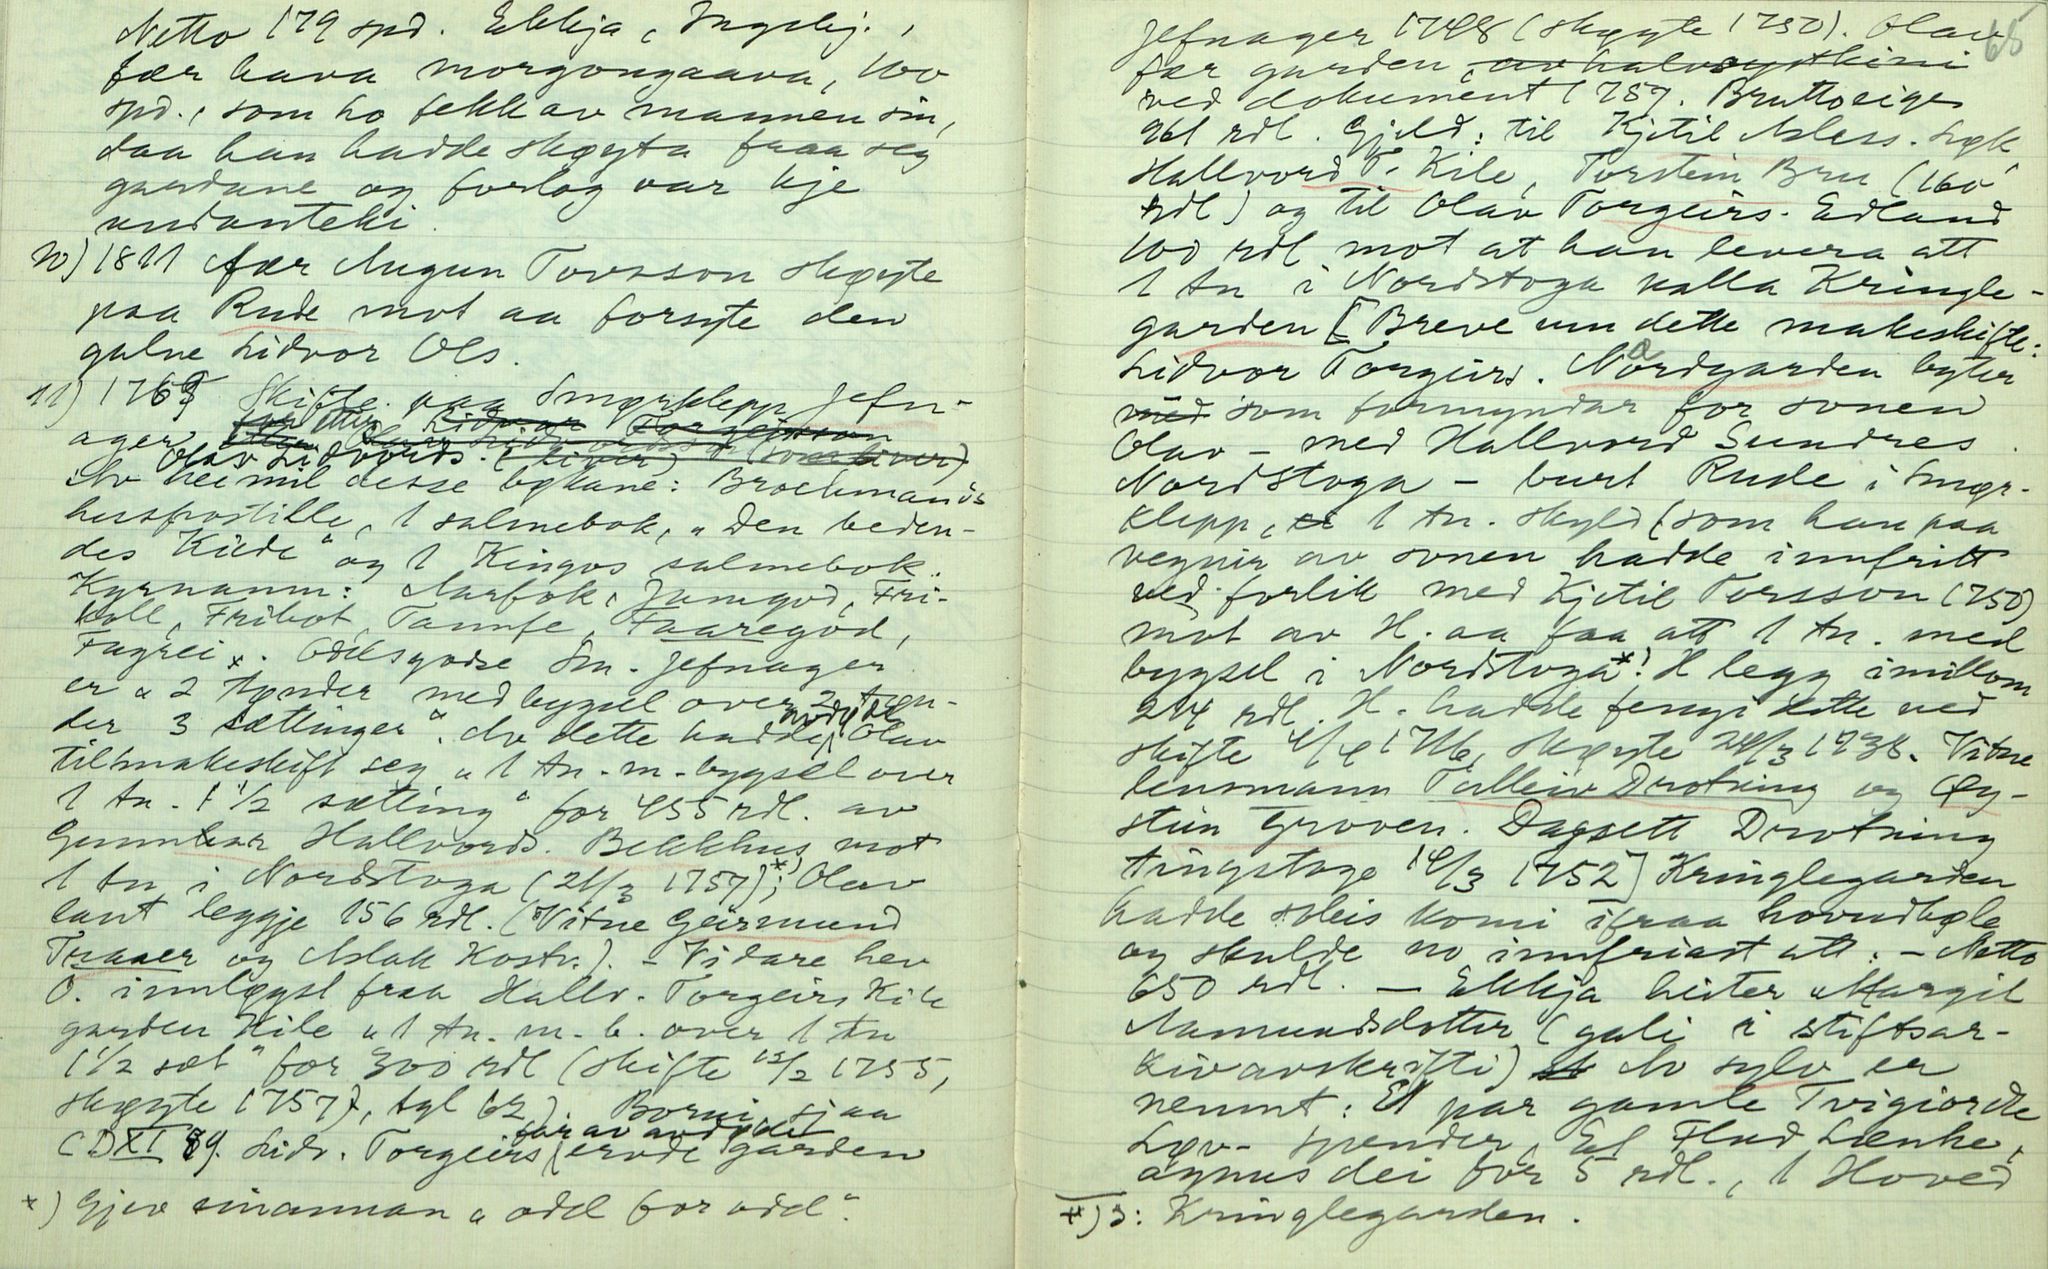 Netto 179 spd. Ekkja, Ingebj.,
fær hava morgongaava, 100
spd., som ho fekk av mannen sin,
daa han hadde skøyta fraa seg
gardane og forlog var kje
undanteki.
10) 1811 fær Augun Torsson skøyte
paa Rude mot aa forsyte den
galne Lidvor Ols.
11) 1769 Skifte paa Smørklepp Jefn-
ager
Olav Lidvords.
Av heimil desse bøkane: Brochmands
huspostille, 1 salmebok, „Den beden-
des Kiede“ og 1 Kingos salmebok.
Kyrnamn: Aarfok, Jamgod, Fri-
koll, Fribot, Tamfe, Faaregod,
Fagrei *. Odelsgodse Sm. Jefnager
er „2 tønder med bygsel over 2 tøn-
der 3 sætlinger“. Av dette hadde Olav
tilmakeskift seg „1 tn. m. bygsel over
1 tn. 1 1/2 sætling“ for 455 rdl. av
Gunnar Hallvords. Bekkhus mot
1 tn i Nordstoga (21/3 1757)*); Olav
laut leggje 156 rdl. (Vitne Geirmund
Traaer og Aslak Kostv.). – Vidare hev
O. innløyst fraa Hallv. Torgeirs Kile
garden Kile „1 tn. m. b. over 1 tn
1 1/2 sæt“ for 300 rdl (skifte 15/2 1755,
skøyte 1757), tgl 62). Borni, sjaa
CDXI 89. Lidv. Torgeirs ervde garden
*) Gjev einannan „odel for odel“.
65
Jefnager 1748 (skøyte 1750). Olav
fær garden
ved dokument 1757. Bruttoeige
961 rdl. Gjeld: til Kjetil Aslers. Løk,
Hallvord T. Kile, Torstein Bru (160
rdl) og til Olav Torgeirs. Edland
100 rdl mot at han levera att
1 tn i Nordstoga kalla Kringle-
garden [Breve um dette makeskifte:
Lidvor Torgeirs. Nordgarden byter
med som formyndar for sonen
Olav – med Hallvord Sundres.
Nordstoga – burt Rude i Smør-
klepp, 1 tn. skyld (som han paa
vegnir av sonen hadde innfritt
ved forlik med Kjetil Torsson 1750)
mot av H. aa faa att 1 tn. med
bygsel i Nordstoga*). H legg imillom
214 rdl. H. hadde fengi dette ved
skifte 4/4 1716, skøyte 24/3 1738. Vitne
lensmann Talleiv Drotning og Øy-
stein Groven. Dagsett Drotning
tingstoge 14/3 1752] Kringlegarden
hadde soleis komi ifraa hovudbøle
og skulde no innfriast att. – Netto
650 rdl. — Ekkja heiter „Margit
Aamundsdotter (gali i stiftsar-
kivavskrifti) Av sylv er
nemnt: Et par gamle Tvigiorde
Løv- spender, Et Flad Lænke,
agnus dei for 5 rdl., 1 Hoved
*) ɔ: Kringlegarden.